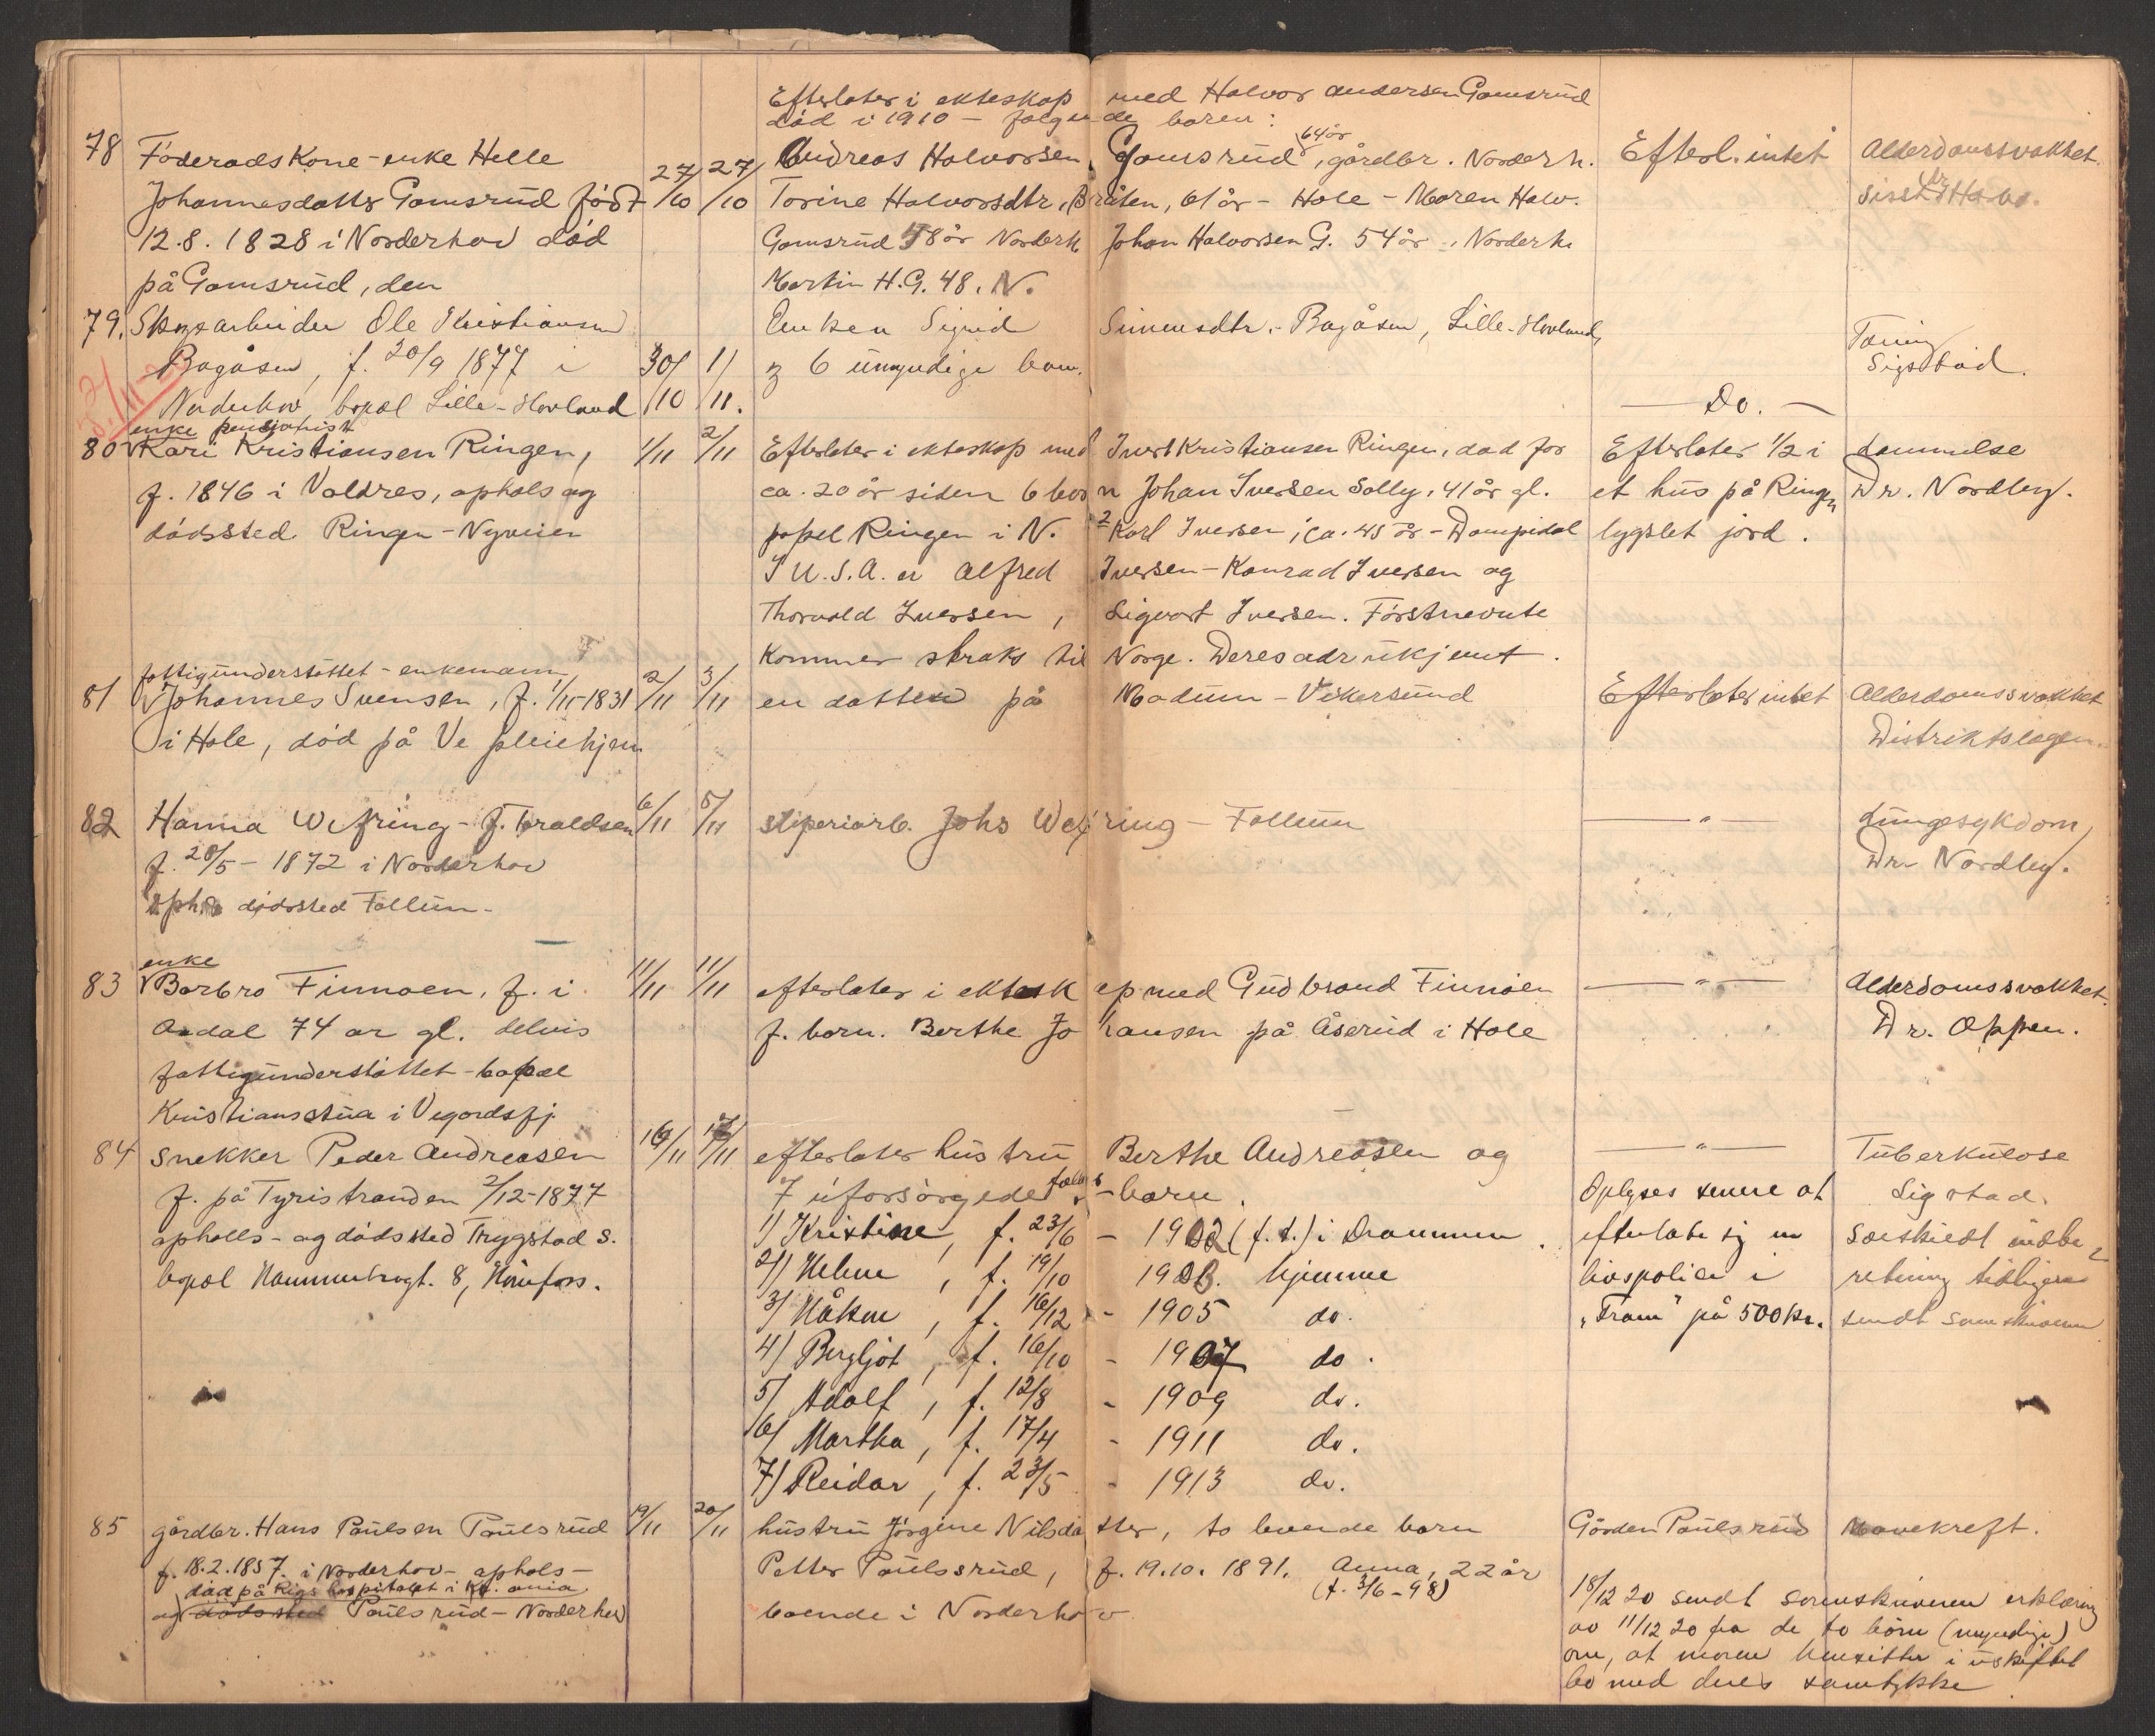 Efterlater i ekteskap med Halvor Andersen Gamsrud
död i 1910 – følgende baren:
78 Föderadskone-enke Helle 27/10 27/10 Andreas Halvorsen Gomsrud, 64 år, gårdbr. Norderh. Efterl. intet Alderdomssvakhet.
Johannesdatter Gamsrud födt Torine Halvorsdtr, Bråten, 61 år – Hole – Maren Halv.
12.8.1828 i Norderhov död Gamsrud 58 år Norderh Johan Halvorsen G. 54 år, Norderh.
på Gamsrud, den Martin H.G. 48. N.
79. Ole Kristiansen Enken Sigrid Simensdtr. Bagåsen, Lille-Hovland,
Bagåsen, f. 20/9 1877 i 30/10 1/11. 6 umyndige barn. Sigstad.
Norderhov, bopæl Lille-Hovland — Do. —
enke pensjonist
80 Kari Kristiansen Ringen, 1/11 2/11 Efterlater i ekteskap med Ivert Kristiansen Ringen, död for Efterlater 1/2 i
f. 1846 i Valdres, ophols og ca. 20 år siden 6 born Johan Iversen Solly, 41 år gl. et hus på Ringen Dr. Nordby.
dödssted Ringen – Nyveien popel Ringen i N. 2 Karl Iversen, ca. 45 år – lygslet jord.
I U.S.A. er Alfred Iversen – Konrad Iversen og
Thorvald Iversen, Sigvart Iversen. Förstnevnte
kommer straks til Norge. Deres adr ukjent.
fattigunderstöttet – enkemann
81 Johannes Svensen, f. 1/11-1831 2/11 3/11 en datter på Modum – Vikersund Efterlater intet Alderdomssvakhet
i Hole, död på Ve pleiehjem Distriktslægen.
82 Hanna Wefring – f. Taraldsen 6/11 5/11 sliperiarb. Johs Wefring – Follum — " — Lungesykdom,
f. 28/5 – 1872 i Norderhov Dr. Nordby.
oph. dödssted Follum –
enke
83 Barbro Finmoen, f. i 11/11 11/11 efterlater i ektesk ap med Gudbrand Finmoen — " — Alderdomssvakhet.
Aadal 74 ar gl. delvis f. born. Berthe Johansen på Åserud i Hole Dr. Oppen.
fattigunderstöttet – bopæl
Kristiansstua i Vegårdsfj.
84 Snekker Peder Andreasen 16/11 17/11 efterlater hustru Berthe Andreasen og — " — Tuberkulose
f. på Tyristranden 2/12-1877 7 uforsörgede – barn. Oplyses senere at Sigstad.
opholls- og dödssted Trygstad S. 1) Kristine, f. 23/6 – 1902 (f.t.) i Drammen. efterlate sig en Særskiedt indbe-
bopæl Hammerbrogt. 8, Hönefoss. 2) Helene, f. 19/10 1903. hjemme livspolice i retning tidligere
3) Håkon, f. 16/12 – 1905 do. "Fram" på 500 kr. sendt sorenskriveren
4) Bergljot, f. 16/10 – 1907 do.
5) Adolf, f. 12/8 – 1909 do.
6) Martha, f. 17/4 – 1911 do.
7) Reidar, f. 23/5 – 1913 do.
85 gårdbr. Hans Paulsen Paulsrud 19/11 20/11 hustru Jörgine Nilsdatter, to levende barn Gården Paulsrud Mavekreft.
f. 18.2.1857. i Norderhov – ophols – Petter Paulsrud, f. 19.10.1891. Anna, 22 år
död på Rigshospitalet i Kr.ania (f. 3/6-98)
og dödssted Paulsrud – Norderhov boende i Norderhov
18/12 20 sendt sorenskriveren erklæring
av 11/12 20 fra de to börn (myndige)
om, at moren hensitter i uskiftet
bo med deres samtykke